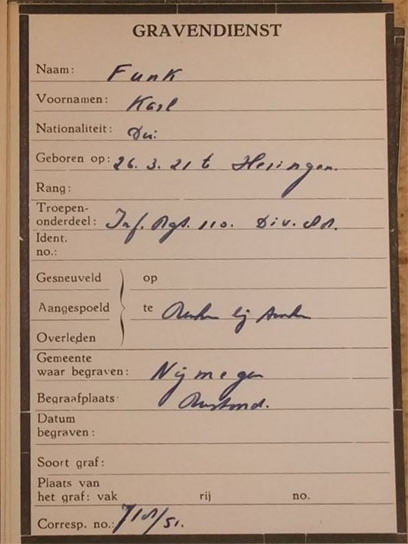 GRAVENDIENST
Naam: Funk
Voornamen: Karl
Nationaliteit: Dui.
Geboren op: 26.3.21 te Hesingen.
Rang:
Troepen-
onderdeel: Inf. Rgt. 110. Div.
Ident.
no.:
Gesneuveld op
Aangespoeld te bij
Overleden
Gemeente
waar begraven: Nijmegen
Begraafplaats: Rustoord.
Datum
begraven:
Soort graf:
Plaats van
het graf: vak rij no.
Corresp. no.: